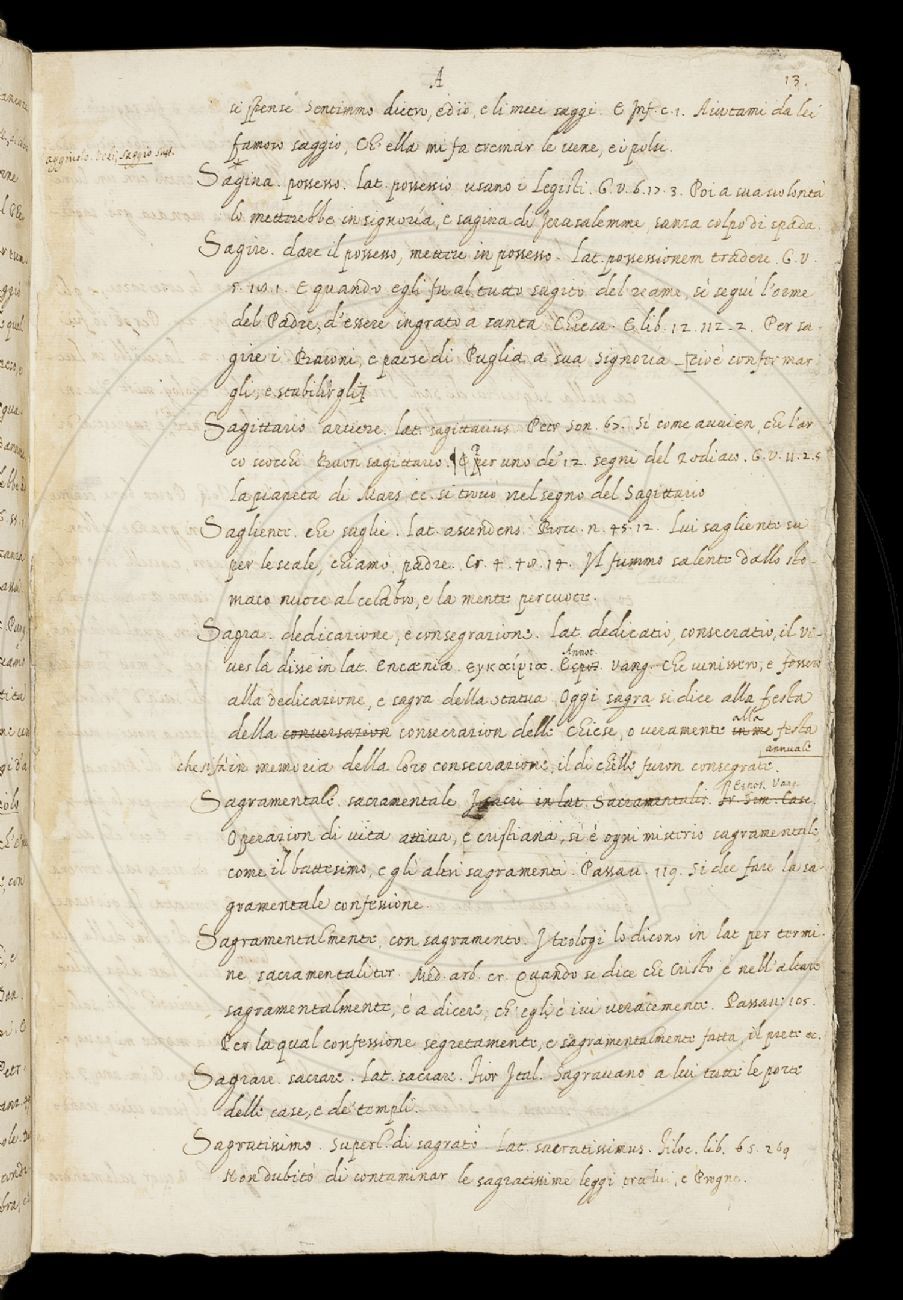 A
13.
si spense Sentimmo dietro, ed io, e li miei saggi. E Inf. c. 1. Aiutami da lei
famoso saggio, Ch' ella mi fa tremar le vene, e i polsi.
Sagina. possesso. Lat. possessio usano i Legisti. G. V. 6. 17. 3. Poi a sua volontà
lo metterebbe in signoria, e sagina di Jerusalemme, sanza colpo di spada.
Sagire. dare il possesso, mettere in possesso. Lat. possessionem tradere. G. V.
E quando egli fu al tutto sagito del reame, si seguì l'orme
del Padre, d'essere ingrato a santa Chiesa. E lib. 12. 112. 2. Per sa-
gire i Baroni, e paese di Puglia a sua Signoria cioè confermar
gli, e stabilirgli
Sagittario arciere. lat. sagittarius. Petr. Son. 67. Sì come avvien, che l'ar
co scocchi Buon sagittario. per uno de' 12. segni del Zodiaco. G. V. 11. 2. 5
la pianeta di Mars ec. si trovò nel segno del Sagittario
Sagliente. che saglie. Lat. ascendens. Bocc. n. 45. 12. Lui sagliente su
per le scale, chiamò, padre. Cr. 4. 48. 14. Il fummo salente dallo sto-
maco nuoce al celabro, e la mente percuote.
Sagra. dedicazione, e consegrazione. Lat. dedicatio, consecratio, il ve-
Annot.
ues la disse in lat. Encænia. Espos. Vang. Che venissero, e fossero
alla dedicazione, e sagra della statua. Oggi sagra si dice alla festa
alla
della conversazion consecrazion delle Chiese, o veramente in me festa
annuale
che si fa in memoria della loro consecrazione, il dì chelle furon consegrate.
Espos. Vang.
Sagramentale. sacramentale. in lat. Sacramentalis.
Operazion di vita attiva, e cristiana, si è ogni misterio sagramentale,
come il battesimo, e gli altri sagramenti. Passav. 119. Si dee fare la sa-
gramentale confessione.
Sagramentalmente, con sagramento. I teologi lo dicono in lat. per termi-
ne sacramentaliter. Med. arb. cr. Quando si dice che Cristo è nell' altare
sagramentalmente, è a dicere, ch' egli è ivi veracemente. Passav. 105.
Per la qual confessione segretamente, e sagramentalmente fatta, il prete ec.
Sagrare. sacrare. Lat. sacrare. Fior Ital. Sagravano a lui tutte le porte
delle case, e de' templi.
Sagratissimo. Superl. di sagrato. Lat. sacratissimus. Filoc. lib. 65. 269
Non dubitò di contaminar le sagratissime leggi tra lui, e Progne.